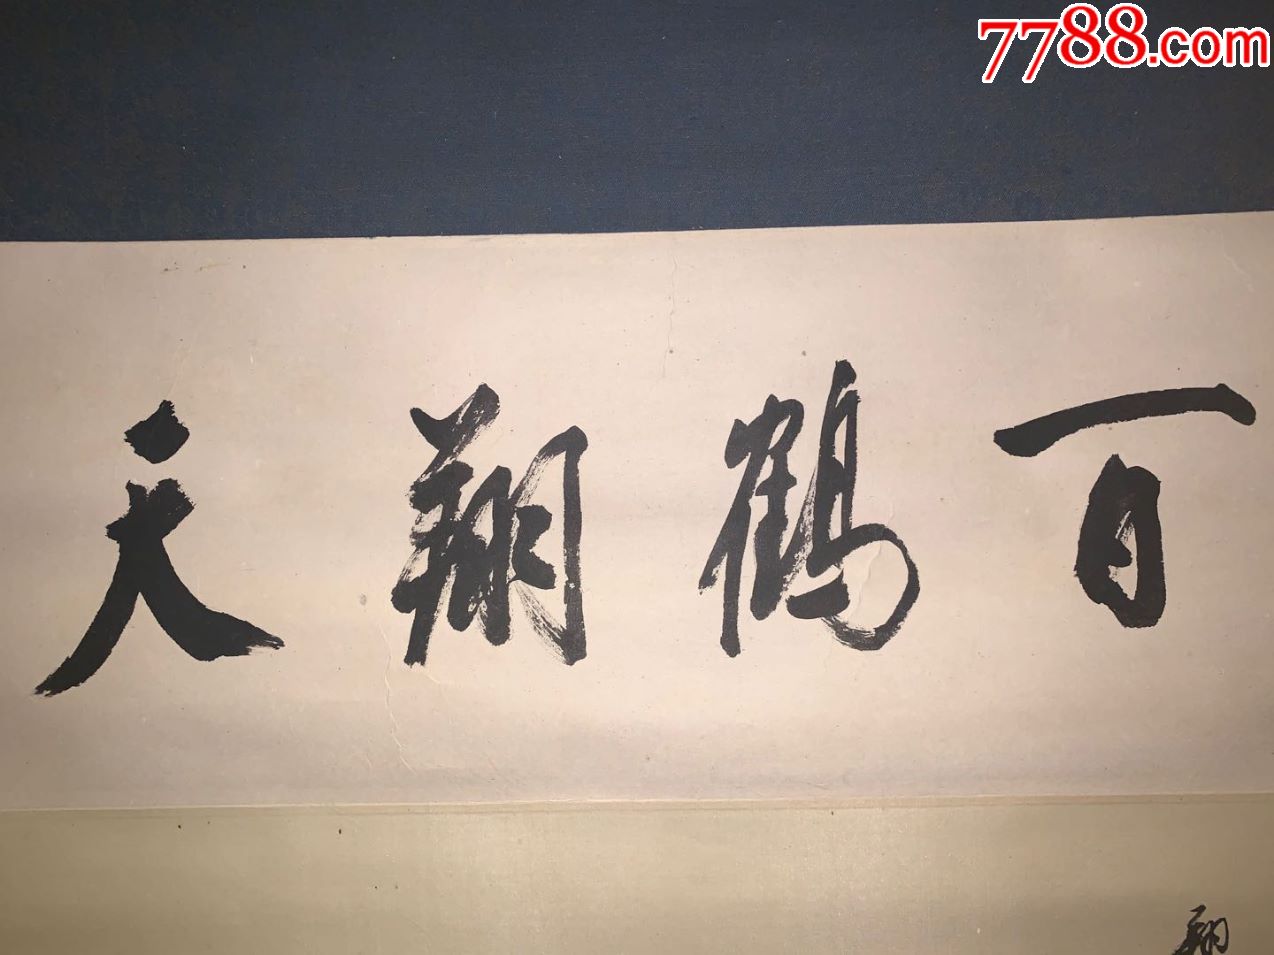 7788.com
百鶴翔天
翔